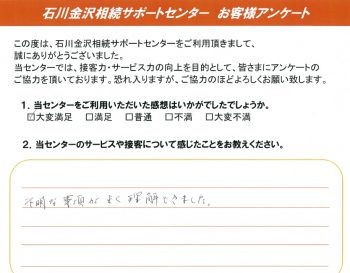 石川金沢相続サポートセンター お客様アンケート
この度は、石川金沢相続サポートセンターをご利用頂きまして、
誠にありがとうございました。
当センターでは、接客力・サービス力の向上を目的として、皆さまにアンケートの
ご協力を頂いております。恐れ入りますが、ご協力のほどよろしくお願い致します。
1. 当センターをご利用いただいた感想はいかがでしたでしょうか。
☑大変満足 □満足 □普通 □不満 □大変不満
2. 当センターのサービスや接客について感じたことをお教えください。
不明な事項がよく理解できました。